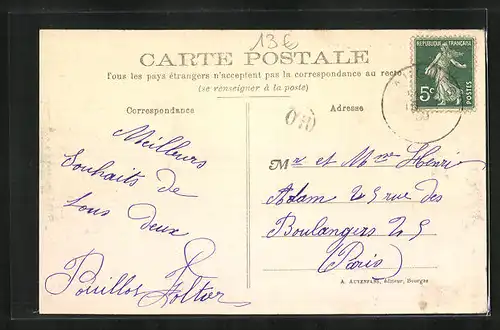 13€
CARTE POSTALE
Tous les pays étrangers n'acceptent pas la correspondance au recto
(se renseigner à la poste)
RÉPUBLIQUE FRANÇAISE
5c
POSTES
Correspondance
Adresse
Meilleurs
Souhaits de
tous deux
Pouillot
Mr et Mme Henri
Adam 25 rue des
Boulangers 25
(Paris)
A. AUXENFANS, éditeur, Bourges